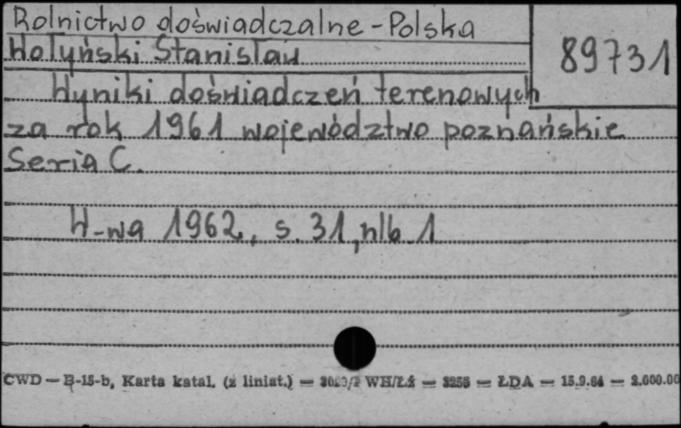 Rolnictwo doświadczalne - Polska
Hołyński Stanisław
89731
Wyniki doświadczeń terenowych
za rok 1961 województwo poznańskie
Seria C.
W-wa 1962, s. 31, nlb. 1
CWD — B-15-b, Karta katal. (z liniat.) — WH/Łź — 3255 — ŁDA — 15.9.64 — 2.000.00